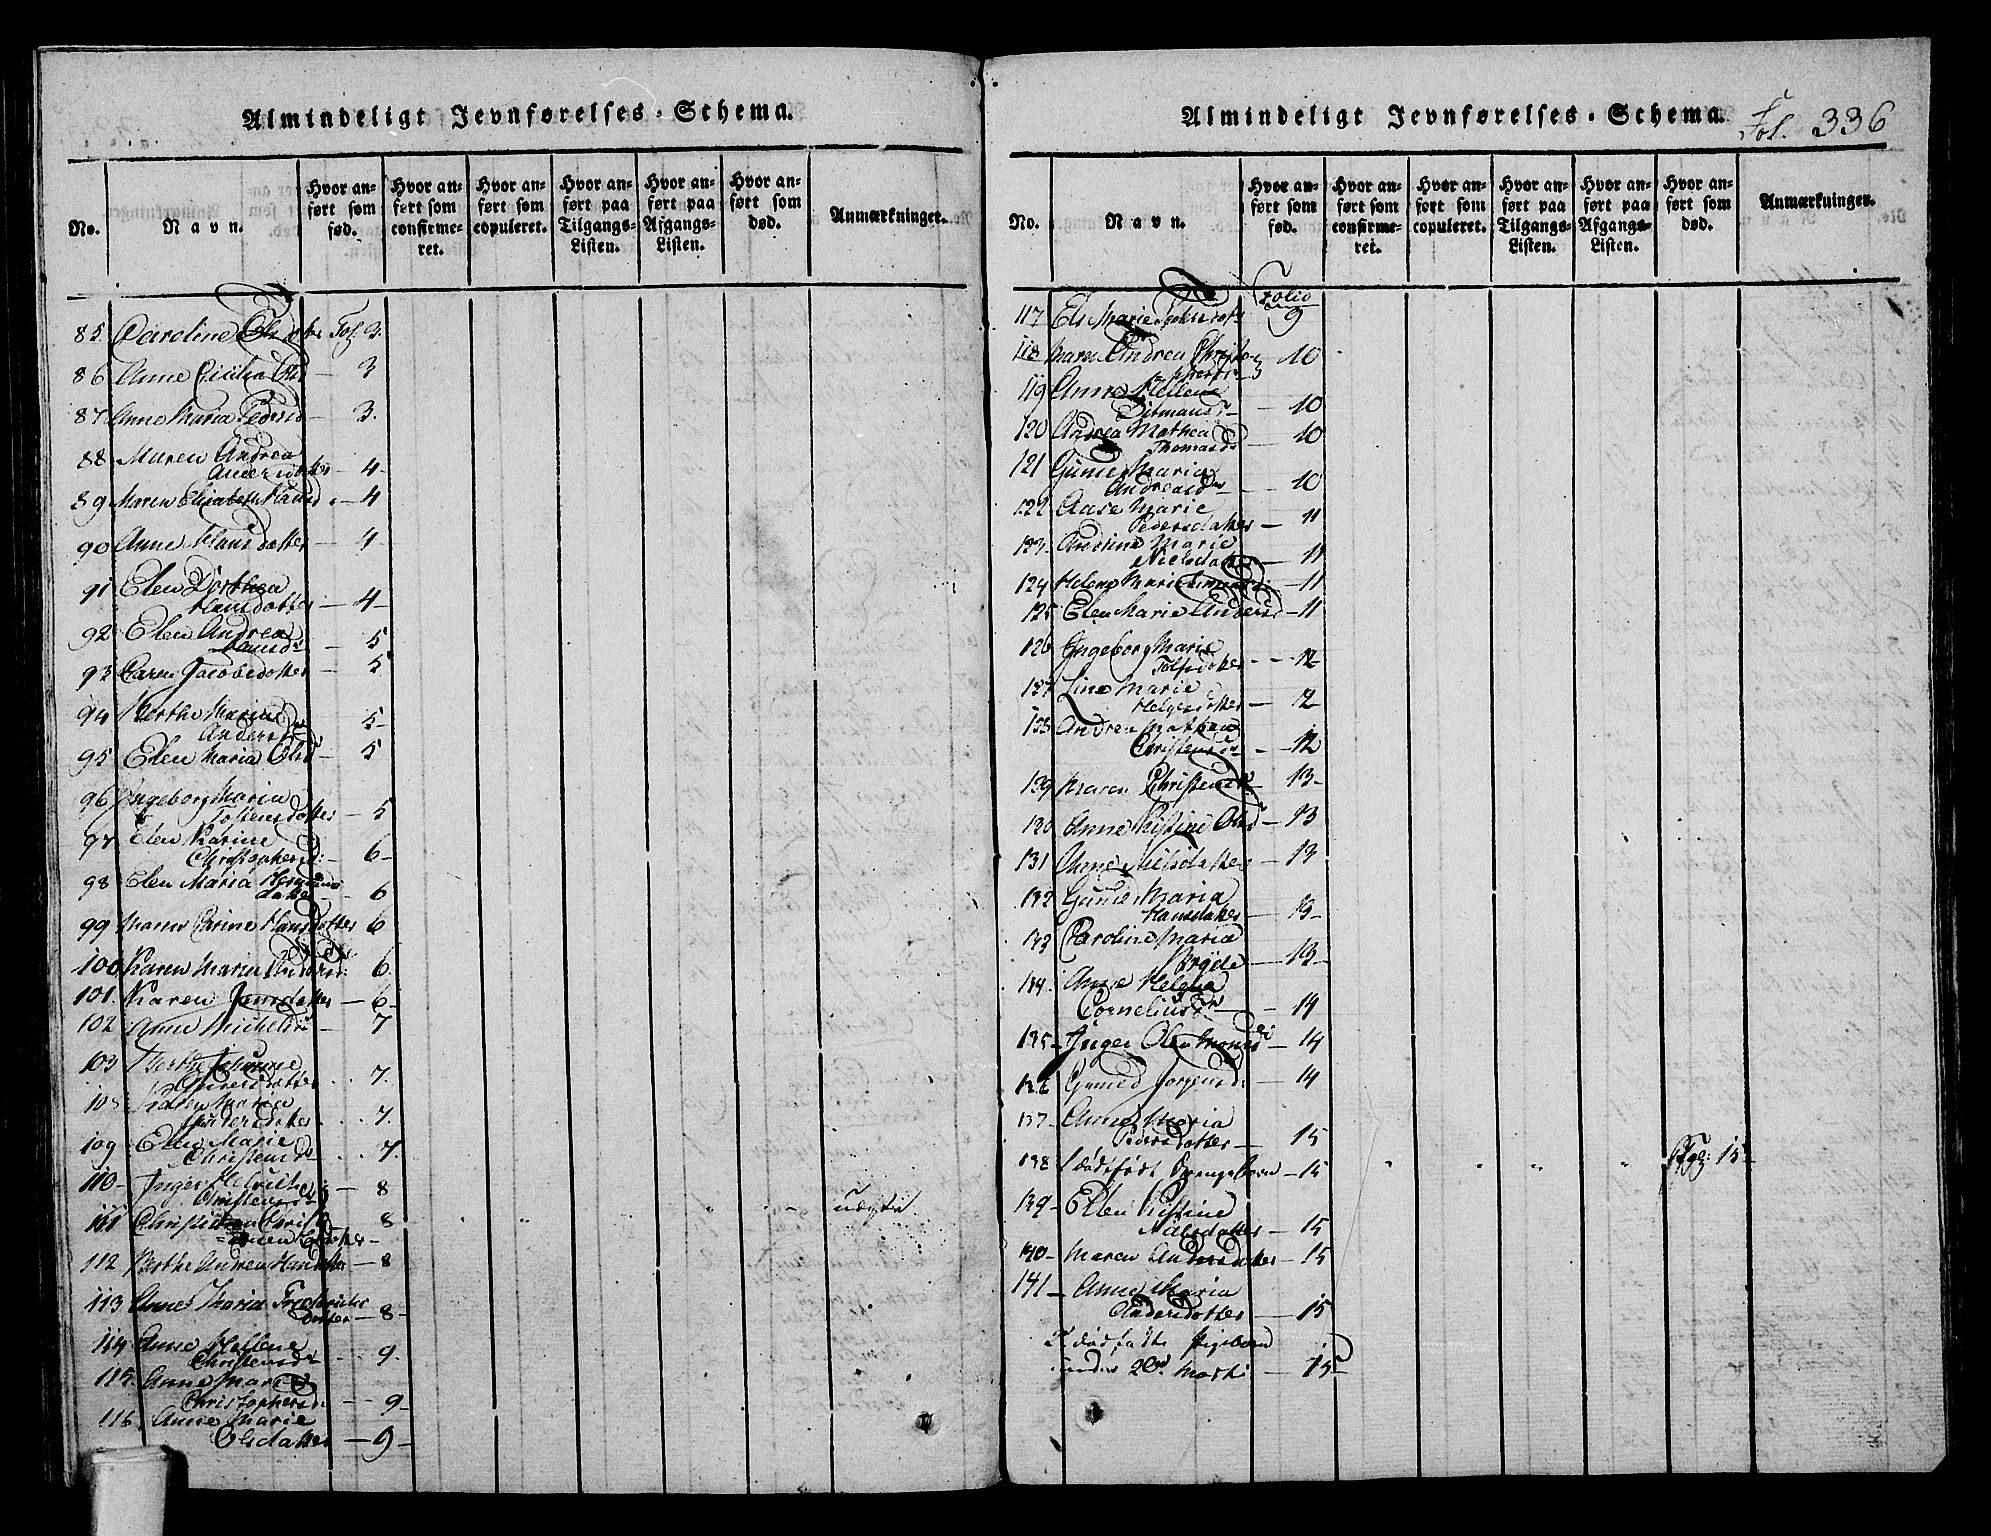 Almindeligt Jevnførelses-Schema.
No.
Navn.
Hvor anført som fød.
Hvor anført som confirmeret.
Hvor anført som copuleret.
Hvor anført paa Tilgangs-Listen.
Hvor anført paa Afgangs-Listen.
Hvor anført som død.
Anmærkninger.
85. Caroline Olsdotter Fol. 3.
86 Anne Cicilia Ols — 3
87 Anne Maria Peders — 3.
88 Maren Andrea
Andersdotter — 4-
89 Maren Elisabeth Hansd. — 4
90 Anne Hansdotter — 4-
91 Elen Dorthea
Hansdotter — 4-
92 Elen Andrea
Hansdr — 5
93 Caren Jacobsdotter — 5
94 Berthe Marine
Andersdr 5-
95 Elen Maria Olsd — 5
96 Ingeborg Maria
Tostensdotter — 5
97 Elen Karine
Christophersd: — 6-
98 Elen Maria
datter — 6
99 Maren Carine Hansdotter 6
100 Karen Maria Anders: 6.
101. Karen Jensdatter — 6-
102 Anne Michelsdr — 7
103 Berthe Johanne
Gunersdatter . . 7.
Karen Maria
. . . 7.
109 Elen Marie
Christensdr . . . 7.
110- Inger Helvich
Christensdr — 8
111 Christian Christi — 8 udgaar
112 Berthe Andrea Hansdatter — 8
113 Anne Maria Frederichs
dotter — 8-
114 Anne Hellene
Christensdr . . 9.
115. Anne Marie
Christophersdr — 9-
116 Anne Marie
Olsdatter — 9-
Almindeligt Jevnførelses-Schema.
Fol. 336
No.
Navn.
Hvor anført som fød.
Hvor anført som confirmeret.
Hvor anført som copuleret.
Hvor anført paa Tilgangs-Listen.
Hvor anført paa Afgangs-Listen.
Hvor anført som død.
Anmærkninger.
Folio
117 Els Marie 9
118 Maren Andrea Christo-
phersdr 10
119 Anne Hellene
Ditmansdr — 10
120 Andrea Mathea
Thomasdr — 10
121 Gunne Maria
Andreasdr — 10
122 Aase Marie
Pedersdatter — 11
123- Andrine Marie
Nielsdatter — 11
124 Helene Marie — 11
125 Elen Marie Andersd — 11
126 Ingeborg Marie
Tolfsdatter - - 12-
127 Line Marie
Helgesdatter — 12
128 Andrea Mathea
Christensdr — 12
129 Maren Christensdr — 13-
130 Anne Kistine Olsd — 13
131 Anne Nielsdatter — 13
132 Gunne Maria
Hansdatter — 13-
133 Caroline Maria
Bryde — 13-
134. Anne Helena
Corneliusdr — 14
135- Inger Olea — 14
136 Guned Jørgensd: — 14
137- Anne Maria
Pedersdatter — 15
138 1 dødfødt Drengebarn — 15 " " " " Pag: 15-
139- Ellen Kistine
Nielsdatter — 15
140- Maren Andersdatter — 15
141- Anne Maria
Andersdotter — 15
Et dødfødt Pigebarn
under 20d Marti — 15-